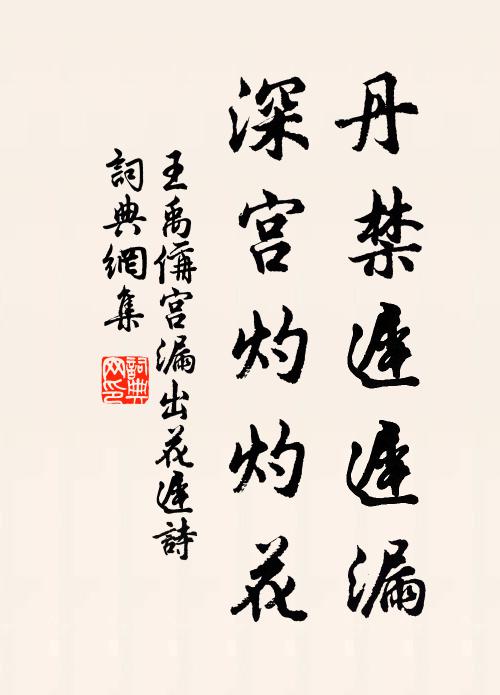 丹禁遲遲漏
深宮灼灼花
王禹偁宮漏出花遲詩
詞典網集
詞典網印